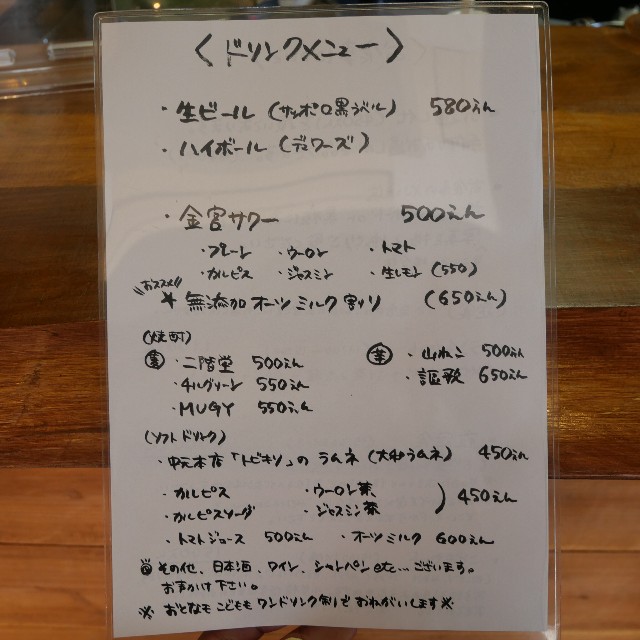 〈ドリンクメニュー〉
・生ビール（サッポロ黒ラベル） 580えん
・ハイボール（デュワーズ）
・金宮サワー 500えん
・プレーン ・ウーロン ・トマト
・カルピス ・ジャスミン ・生レモン（550）
おススメ!!
＊無添加オーツミルク割り （650えん）
（焼酎）
麦 ・二階堂 500えん 芋 ・山ねこ 500えん
・チルグリーン 550えん ・謳歌 650えん
・MUGY 550えん
（ソフトドリンク）
・中元本店「トビキリ」のラムネ（大和ラムネ） 450えん
・カルピス ・ウーロン茶
・カルピスソーダ ・ジャスミン茶 ）450えん
・トマトジュース 500えん ・オーツミルク 600えん
その他、日本酒、ワイン、シャンパンetc...ございます。
お声かけ下さい。
※おとなもこどもワンドリンク制でおねがいします※